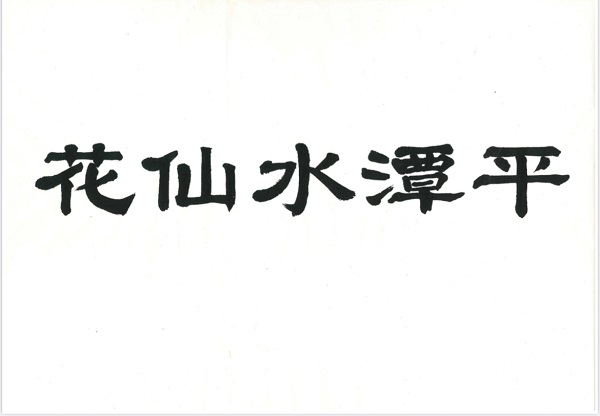 平潭水仙花